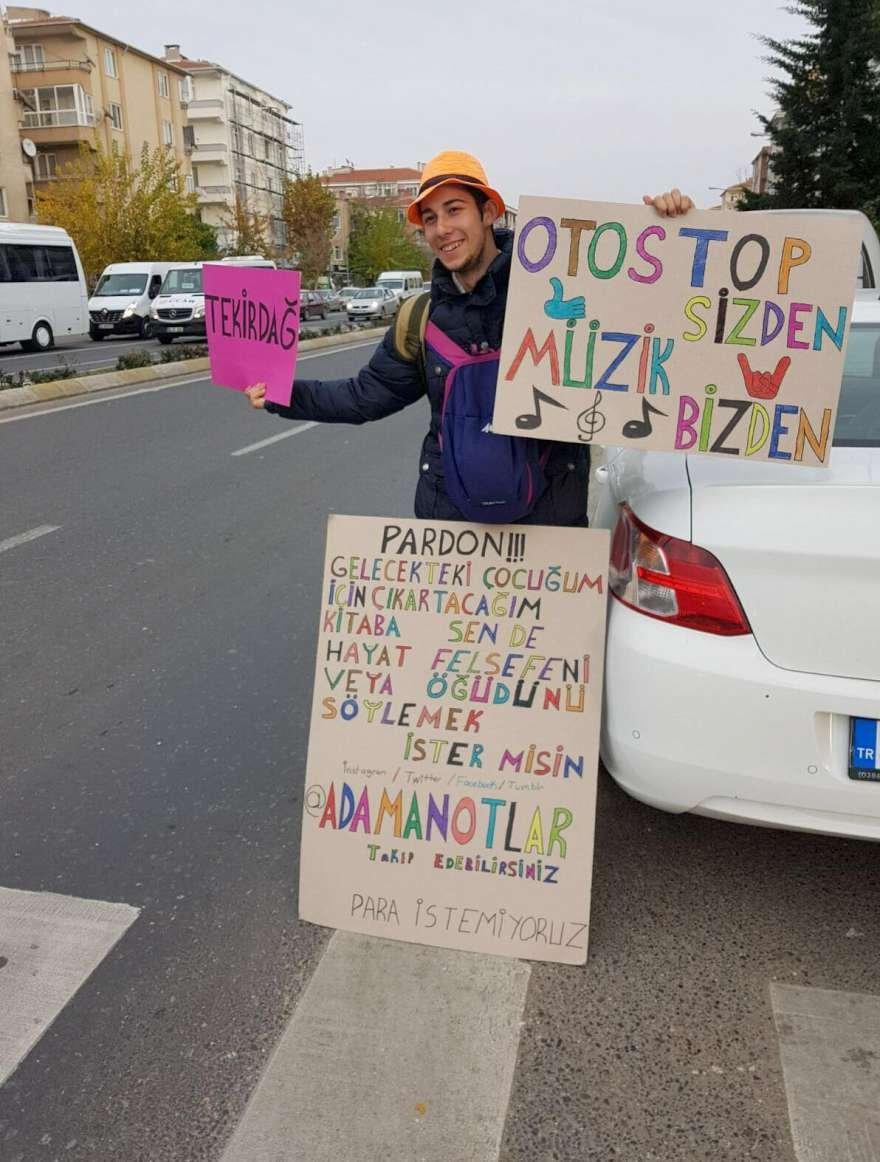 TEKİRDAĞ
OTOSTOP
SİZDEN
MÜZİK
BİZDEN
PARDON!!!
GELECEKTEKİ ÇOCUĞUM
İÇİN ÇIKARTACAĞIM
KİTABA SEN DE
HAYAT FELSEFENİ
VEYA ÖĞÜDÜNÜ
SÖYLEMEK
İSTER MİSİN
Instagram / Twitter / Facebook / Tumblr
@ADAMANOTLAR
TAKİP EDEBİLİRSİNİZ
PARA İSTEMİYORUZ
TR